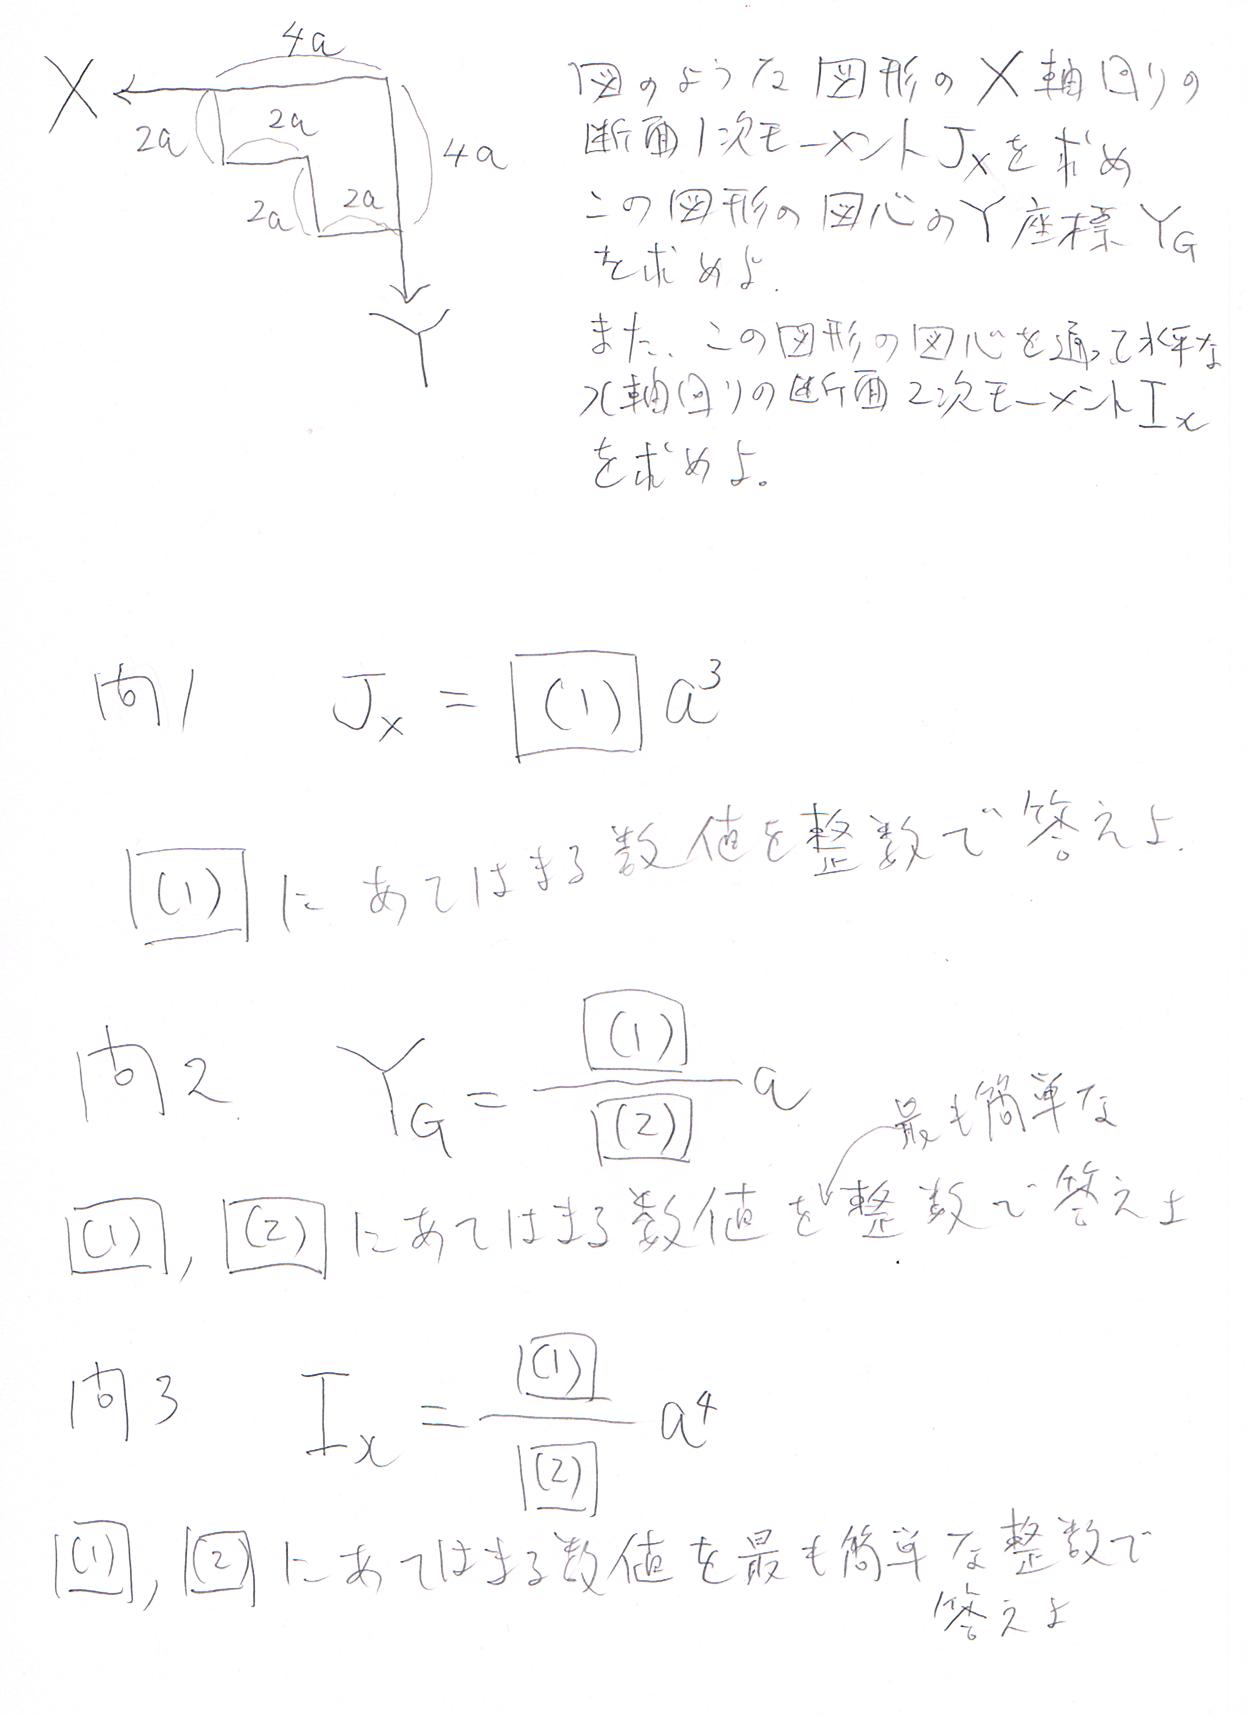 4a
X
2a
2a
4a
2a
2a
Y
図のような図形のX軸回りの
断面1次モーメントJxを求め
この図形の図心のY座標YG
を求めよ.
また、この図形の図心を通って水平な
x軸回りの断面2次モーメントIx
を求めよ。
問1 Jx = (1) a³
(1) にあてはまる数値を整数で答えよ.
問2 YG = (1)/(2) a
最も簡単な
(1), (2) にあてはまる数値を整数で答えよ
問3 Ix = (1)/(2) a⁴
(1), (2) にあてはまる数値を最も簡単な整数で
答えよ